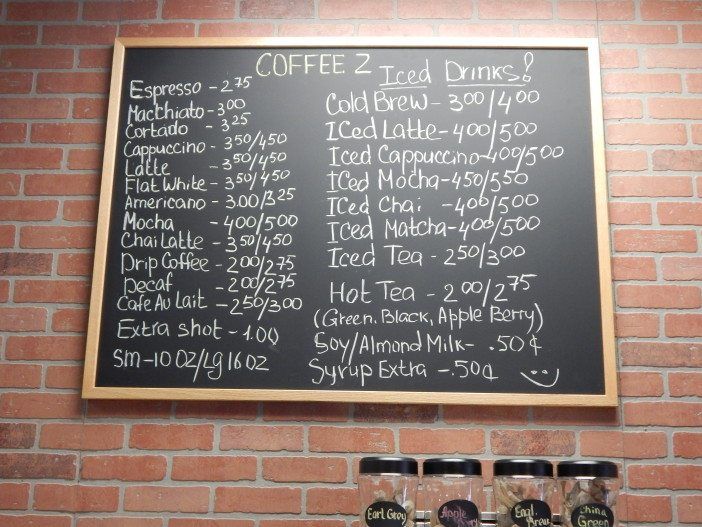 COFFEE 2
Espresso - 2 75
Macchiato - 3 00
Cortado - 3 25
Cappuccino - 3 50/4 50
Latte - 3 50/4 50
Flat White - 3 50/4 50
Americano - 3 00/3 25
Mocha - 4 00/5 00
Chai Latte - 3 50/4 50
Drip Coffee - 2 00/2 75
Decaf - 2 00/2 75
Cafe Au Lait - 2 50/3 00
Extra shot - 1.00
Sm - 10 OZ/Lg 16 OZ
Iced Drinks!
Cold Brew - 3 00/4 00
ICed Latte - 4 00/5 00
Iced Cappuccino - 4 00/5 00
ICed Mocha - 4 50/5 50
ICed Chai - 4 00/5 00
ICed Matcha - 4 00/5 00
Iced Tea - 2 50/3 00
Hot Tea - 2 00/2 75
(Green. Black, Apple Berry)
Soy/Almond Milk - .50 ¢
Syrup Extra - .50 ¢
Earl Grey
Apple
Engl.
China
Green